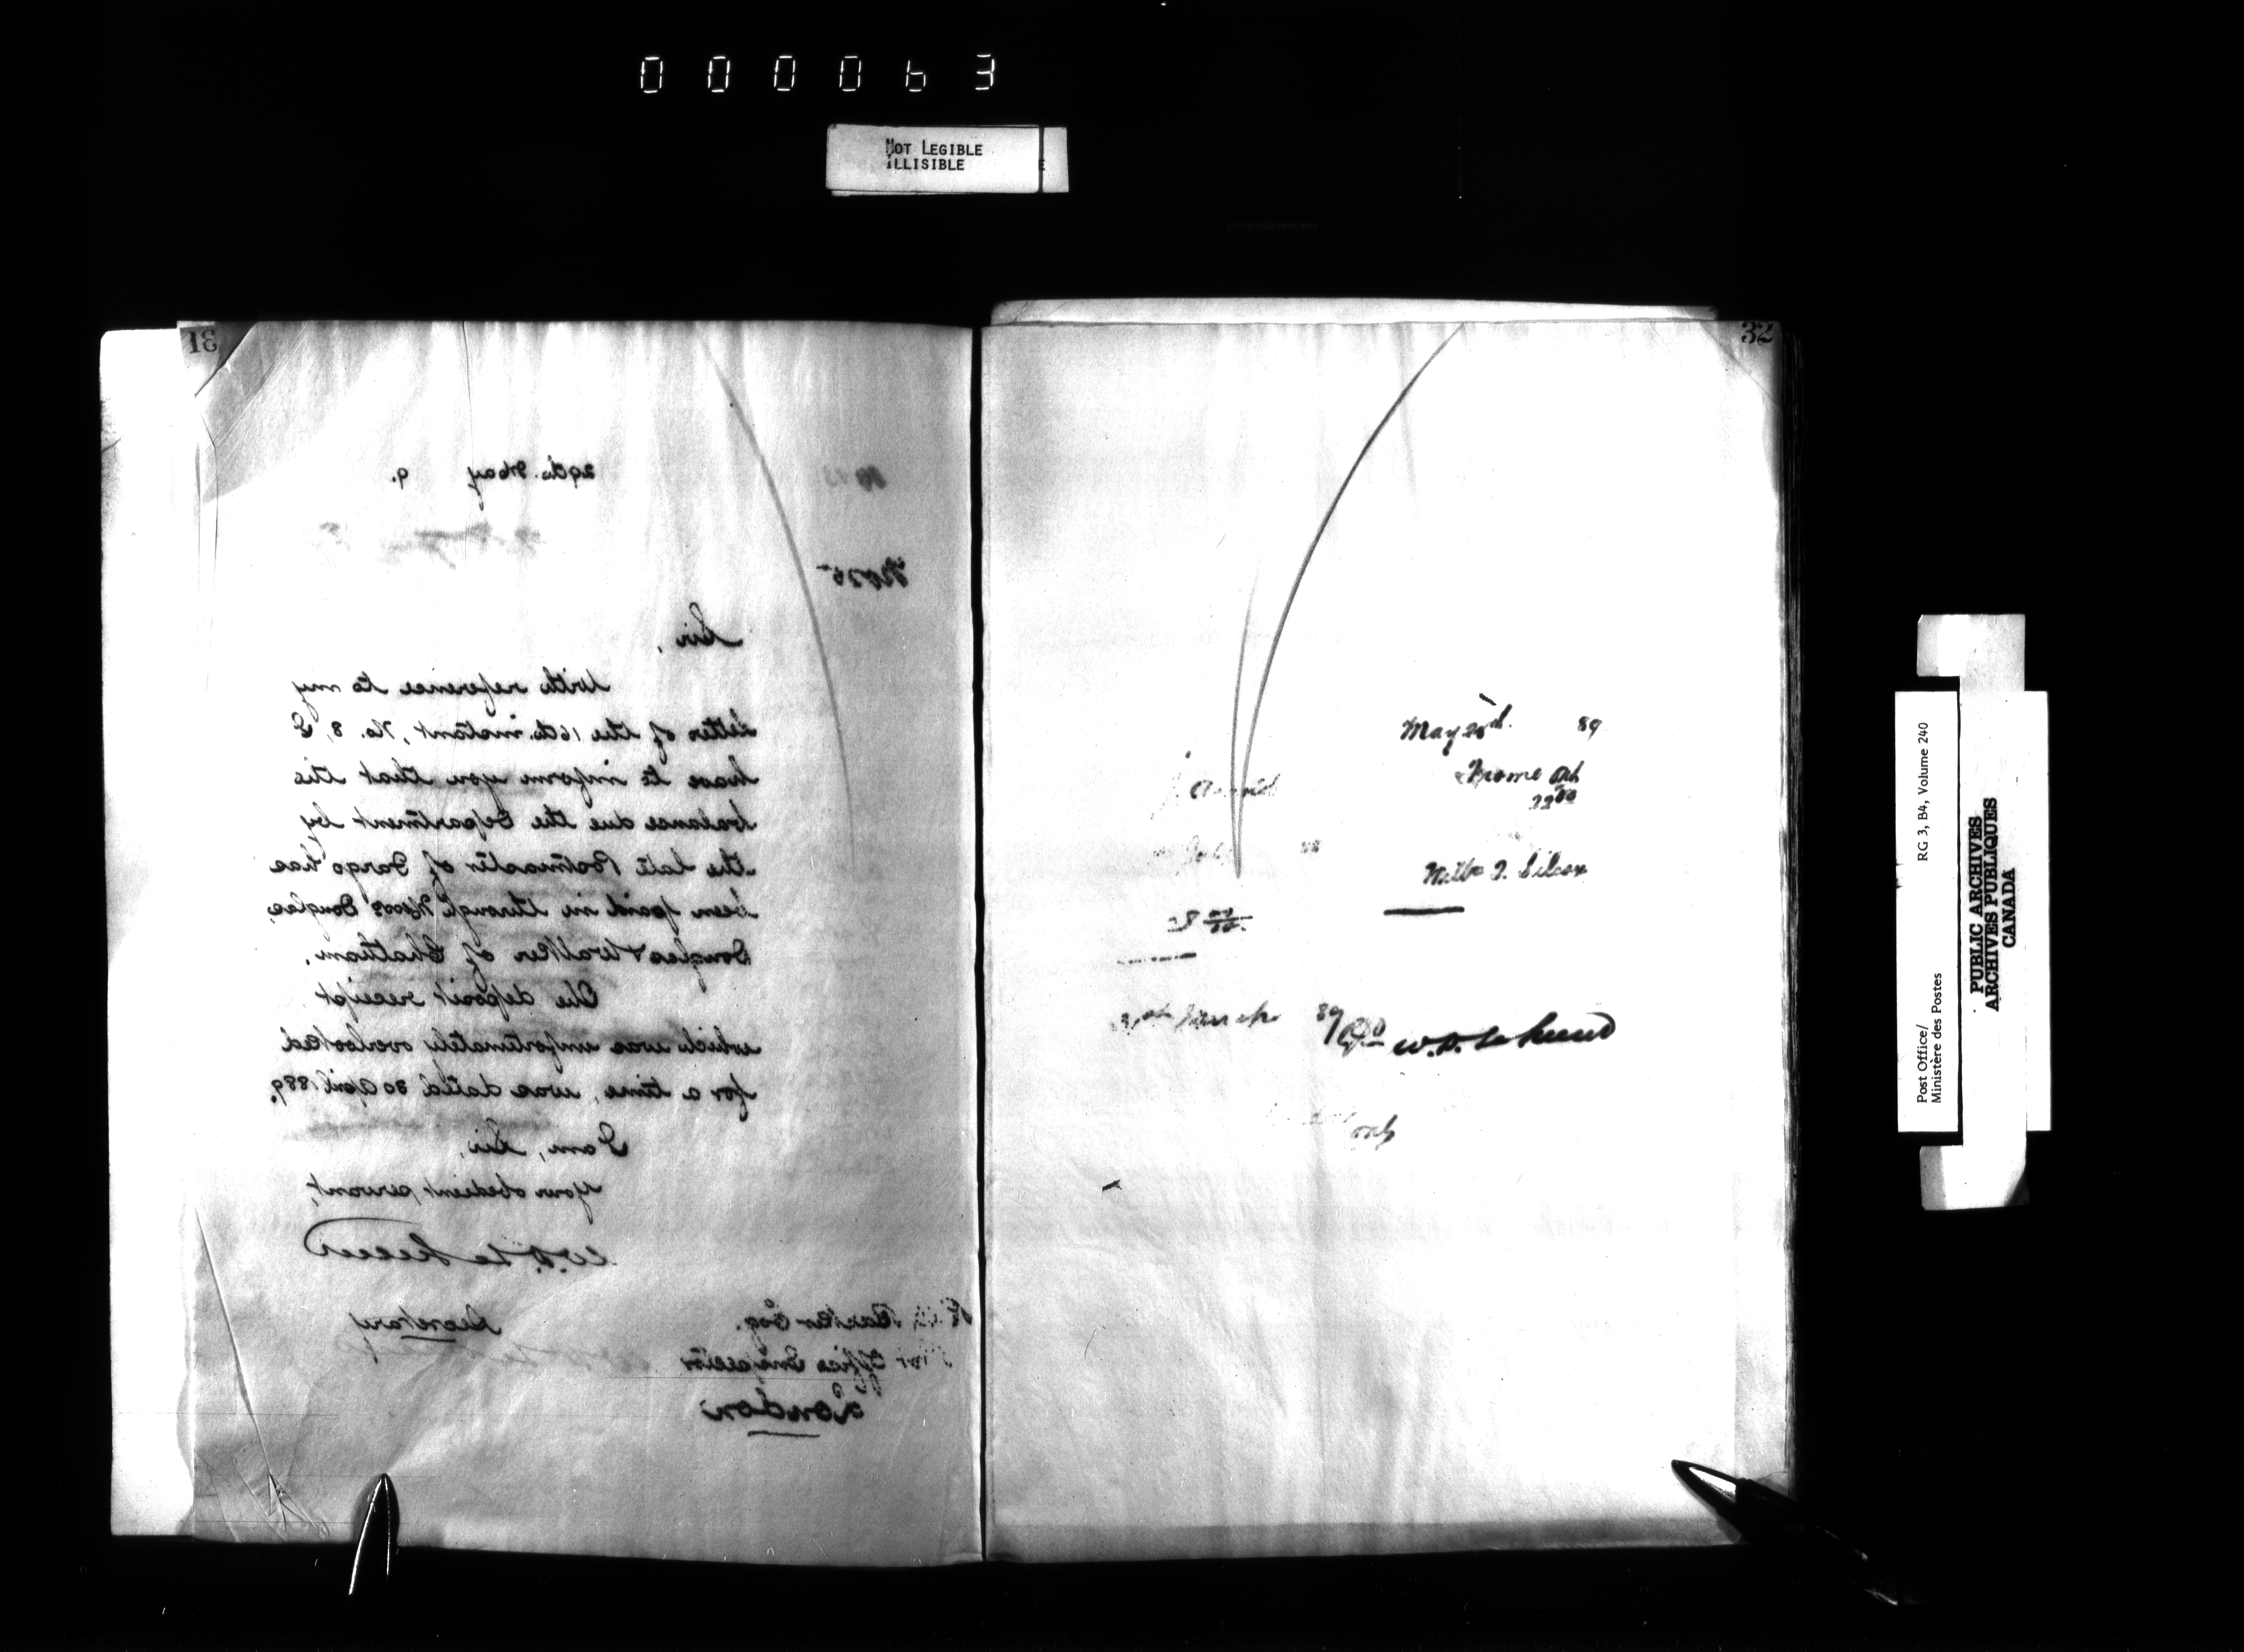 000063
NOT LEGIBLE
ILLISIBLE
31
29th. May 9.
No 25
Sir,
With reference to my
letter of the 16th instant, No. 8, I
have to inform you that the
balance due the Department by
the late Postmaster of Fargo has
been paid in through Messrs Douglas,
Douglas & Walker of Chatham.
The deposit receipt
which was unfortunately overlooked
for a time, was dated 30 April 1889.
I am, Sir,
Your obedient servant,
W.D. Le Sueur
Secretary
Barker Esq.
Post Office Inspector
London
32
May 89
Frome Ont
22 00
J. Silcox
89
W.D. Le Sueur
Ont
Post Office/
Ministère des Postes
RG 3, B4, Volume 240
PUBLIC ARCHIVES
ARCHIVES PUBLIQUES
CANADA